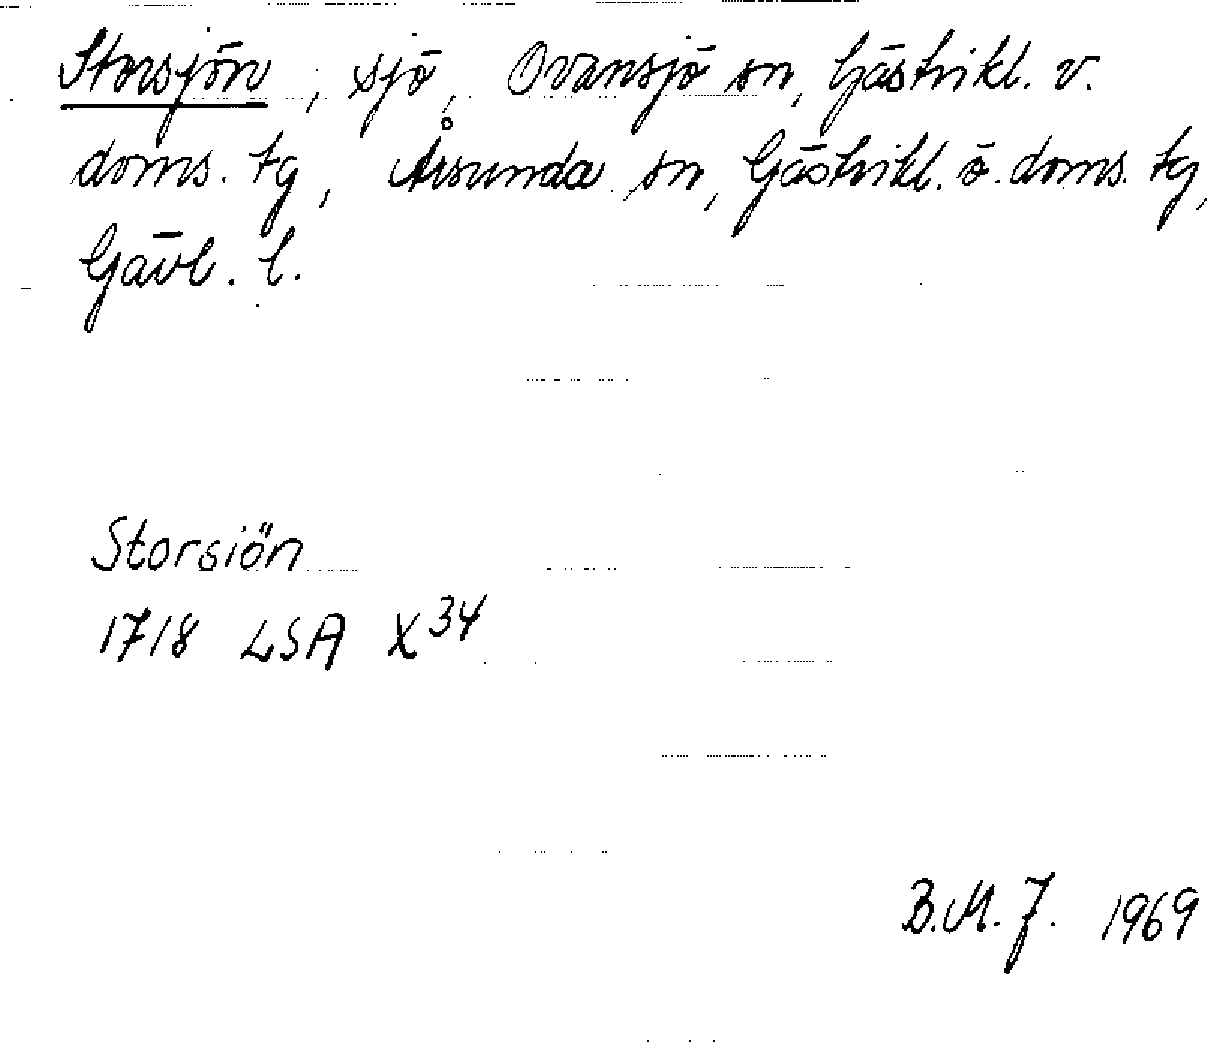 Storsjön, sjö, Ovansjö sn, Gästrikl. v.
doms. tg, Årsunda sn, Gästrikl. ö. doms. tg,
Gävl. l.
Storsiön
1718 LSA X34
B.M.J. 1969